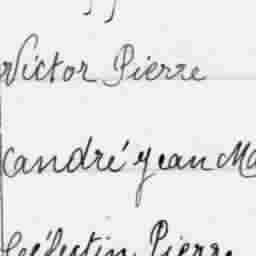 Victor Pierre
André Jean Ma
Célestin Pierre